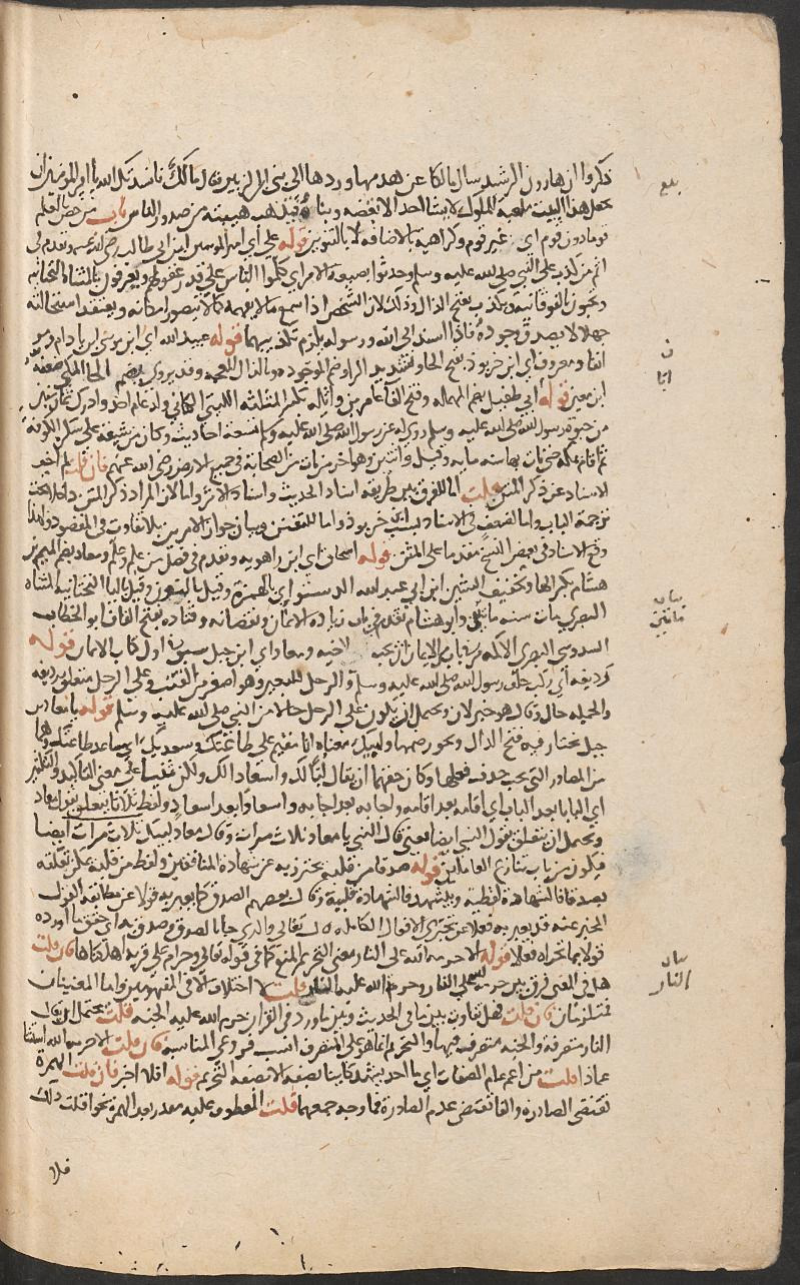 ذكروا ان هارون الرشيد سال مالكا عن هدمها وردها الى بنى ابن الزبير فقال مالك ناشدتك الله يا امير المومنين ان
تجعل هذا البيت ملعبة الملوك لا يشا احد الا نقضه وبناه فتذهب هيبته من صدور الناس باب من خص بالعلم
قوما دون قوم اى غير قوم وكراهية بالاضافة لا بالتنوين قوله على أي امير المومنين ابن ابى طالب رضى الله عنه وتقدم فى
اثم من كذب على النبي صلى الله عليه وسلم وحدثوا بصيغة الامر اي كلموا الناس على قدر عقولهم ويعرفون بالمثناة التحتانية
وتحبون بالفوقانية ويكذب بفتح الذال وذلك لان الشخص اذا سمع ما لا يفهمه وما لا يتصور امكانه ويعتقد استحالته
جهلا لا يصدق وجوده فاذا اسند الى الله ورسوله يلزم تكذيبهما قوله عبيد الله أي ابن موسى ابن باذام ومر
انفا ومعروف اي ابن خربوذ بفتح الخا وتشديد الرا وضم الموحدة وبالذال المعجمة وقد يروى بضم الخا المكى ضعفه
ابن معين قوله أبى طفيل بضم المهملة وفتح الفا عامر بن واثلة بكسر المثلثة الليثى الكنانى ولد عام احد وادرك ثمان سنين
من حيوة رسول الله صلى الله عليه وسلم روى له عن رسول الله صلى الله عليه وسلم تسعة احاديث وكان من شيعة على سكن الكوفة
ثم اقام بمكة حتى مات بها سنة ماية وقيل واثنين وهو اخر من مات من الصحابة في جميع الارض رضى الله عنهم فان قلت لم اخر
الاسناد عن ذكر المتن قلت اما للفرق بين طريقة اسناد الحديث واسناد الاثر واما لان المراد ذكر المتن داخلا تحت
ترجمة الباب واما لضعف فى الاسناد بسبب ابن خربوذ واما للتفنن وبيان جواز الامرين بلا تفاوت فى المقصود ولهذا
وقع الاسناد فى بعض النسخ مقدما على المتن قوله اسحاق اى ابن راهويه وتقدم فى فضل من علم وعلم ومعاذ بضم الميم بن
هشام بكسر الها وتخفيف الشين ابن ابي عبد الله الدستوائى بالهمزة وقيل بالنون وقيل باليا التحتانية المثناة
البصرى مات سنة مايتين وابو هشام تقدم فى باب زيادة الايمان ونقصانه وقتادة بفتح القاف ابو الخطاب
السدوسى البصرى الاكمه مر فى باب من الايمان ان يحب لاخيه ومعاذ اي ابن جبل سبق فى اول كتاب الايمان قوله
رديفه أى راكب خلف رسول الله صلى الله عليه وسلم والرحل للبعير وهو اصغر من القتب وعلى الرحل متعلق برديفه
والجملة حال وقال هو خبر لان ويحتمل ان يكون على الرحل حالا من النبي صلى الله عليه وسلم قوله يا معاذ بن
جبل يختار فيه فتح الدال ويجوز ضمها ولبيك معناه انا مقيم على طاعتك وسعديك اي مساعد طاعتك وهما
من المصادر التى يجب حذف فعلها وكان حقهما ان يقال لبالك واسعادا لك ولكن ثنيا على معنى التاكيد والتكثير
اى البابا بعد الباب اي اقامة بعد اقامة واجابة بعد اجابة واسعادا بعد اسعاد ولفظ ثلاثا يتعلق بقول معاذ
ويحتمل ان يتعلق بقول النبي ايضا يعنى قال النبي يا معاذ ثلاث مرات وقال معاذ لبيك ثلاث مرات ايضا
فيكون من باب تنازع العاملين قوله صدقا من قلبه يحترز به عن شهادة المنافقين ولفظ من قلبه يمكن تعلقه
بصدقا فالشهادة لفظية وبيشهد فالشهادة قلبية وقال بعضهم الصدق كما يعبر به قولا عن مطابقة القول
المخبر عنه قد يعبر به فعلا عن تحرى الافعال الكاملة قال تعالى والذى جاء بالصدق وصدق به اي حقق ما أورده
قولا بما تحراه فعلا قوله الا حرمه الله على النار معنى التحريم المنع كما فى قوله تعالى وحرام على قرية اهلكناها فان قلت
هل فى المعنى فرق بين حرمه الله على النار وحرم الله عليه النار قلت لا اختلاف الا فى المفهومين واما المعنيان
فمتلازمان فان قلت فهل تفاوت بين ما فى الحديث وبين ما ورد فى القران حرم الله عليه الجنة قلت يحتمل ان يقال
النار متصرفة والجنة متصرف فيها والتحريم انما هو على المتصرف انسب فروعى المناسبة فان قلت الا حرمه الله استثنا
عماذا قلت من اعم عام الصفات اي ما احد يشهد كاينا بصفة الا بصفة التحريم قوله افلا اخبر فان قلت الهمزة
تقتضى الصدارة والفا تقتضى عدم الصدارة فما وجه جمعهما قلت المعطوف عليه مقدر بعد الهمزة نحو اقلت ذلك
فلا
بيان
النار